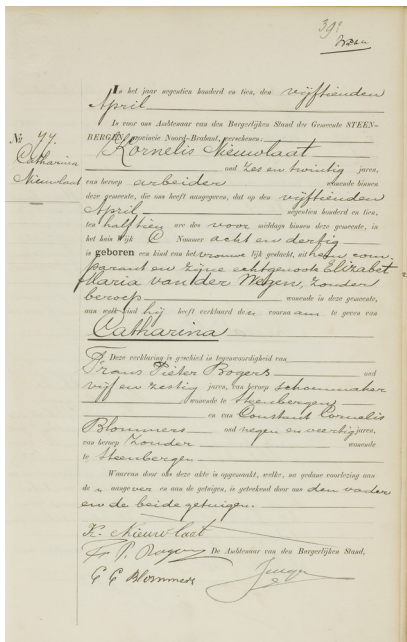 In het jaar negentien honderd en tien, den vijftienden
April
is voor ons Ambtenaar van den Burgerlijken Stand der Gemeente STEEN-
BERGEN, provincie Noord-Brabant, verschenen:
No 77
Catharina
Nieuwlaat
Kornelis Nieuwlaat
oud zes en twintig jaren,
van beroep arbeider wonende binnen
deze gemeente, die ons heeft aangegeven, dat op den vijftienden
April negentien honderd en tien,
ten half tien ure des voor middags binnen deze gemeente, in
het huis wijk C Nummer acht en dertig
is geboren een kind van het vrouwelijk geslacht, uit hem com-
parant en zijne echtgenoote Elizabet
Maria van der Wegen, zonder
beroep wonende in deze gemeente,
aan welk kind hij heeft verklaard den voornaam te geven van
Catharina
Deze verklaring is geschied in tegenwoordigheid van
Frans Pieter Bogers oud
vijf en zestig jaren, van beroep schoenmaker
wonende te Steenbergen
en van Constant Cornelis
Blommers oud negen en veertig jaren,
van beroep zonder wonende
te Steenbergen
Waarvan door ons deze akte is opgemaakt, welke, na gedane voorlezing aan
den aangever en aan de getuigen, is geteekend door ons den vader
en de beide getuigen.
K. Nieuwlaat
De Ambtenaar van den Burgerlijken Stand,
C C Blommers